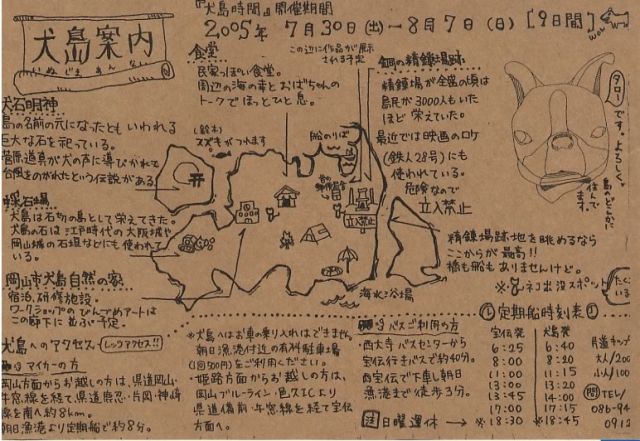 『犬島時間』開催期間
2005年 7月30日(土)-8月7日(日)[9日間]
wow
犬島案内
いぬじま あんない
食堂
民家っぽい食堂。
周辺の海の幸とおばちゃんの
トークでほっとひと息。
この辺に作品が展示
される予定
銅の精錬場跡
精錬場が全盛の頃は
島民が3000人もいた
ほど栄えていた。
最近では映画のロケ
(鉄人28号)にも
使われている。
危険なので
立入禁止
タローです。よろしく。
島のどこかに
住んでます。
犬石明神
島の名前の元になったともいわれる
巨大な石を祀っている。
菅原道真が犬の声に導びかれて
台風をのがれたという伝説がある
(鈴木)
スズキがつれます
船のりば
立入禁止
採石場
犬島は石切の島として栄えてきた。
犬島の石は江戸時代の大阪城や
岡山城の石垣などにも使われて
いる。
精錬場跡地を眺めるなら
ここからが最高!!
橋も船もありませんけど。
※ネコ出没スポット
海水浴場
岡山市犬島自然の家
宿泊、研修施設。
ワークショップのびんづめアートは
この廊下に並ぶ予定。
犬島へのアクセス
レッツアクセス!!
マイカーの方
岡山方面からお越しの方は、県道岡山・
牛窓線を経て、県道飛恋・片岡・神崎
線を南へ約8km。
朝日漁港より定期船で約8分。
*犬島へはお車の乗り入れはできません。
朝日漁港付近の有料駐車場
(1回500円)をご利用ください。
・姫路方面からお越しの方は、
岡山ブルーライン・邑久ICより
県道備前・牛窓線を経て宝伝
方面へ。
バスご利用の方
・西大寺バスセンターから
宝伝行きバスで約40分。
西宝伝で下車し朝日
漁港まで徒歩3分。
注 日曜運休 →
定期船時刻表
宝伝発 犬島発
6:25 6:40
8:00 8:20
11:00 11:15
13:00 13:25
13:45 14:00
17:00 17:15
※18:30 ※18:45
大人/200
小人/100
問 TEL/
086-94
0912